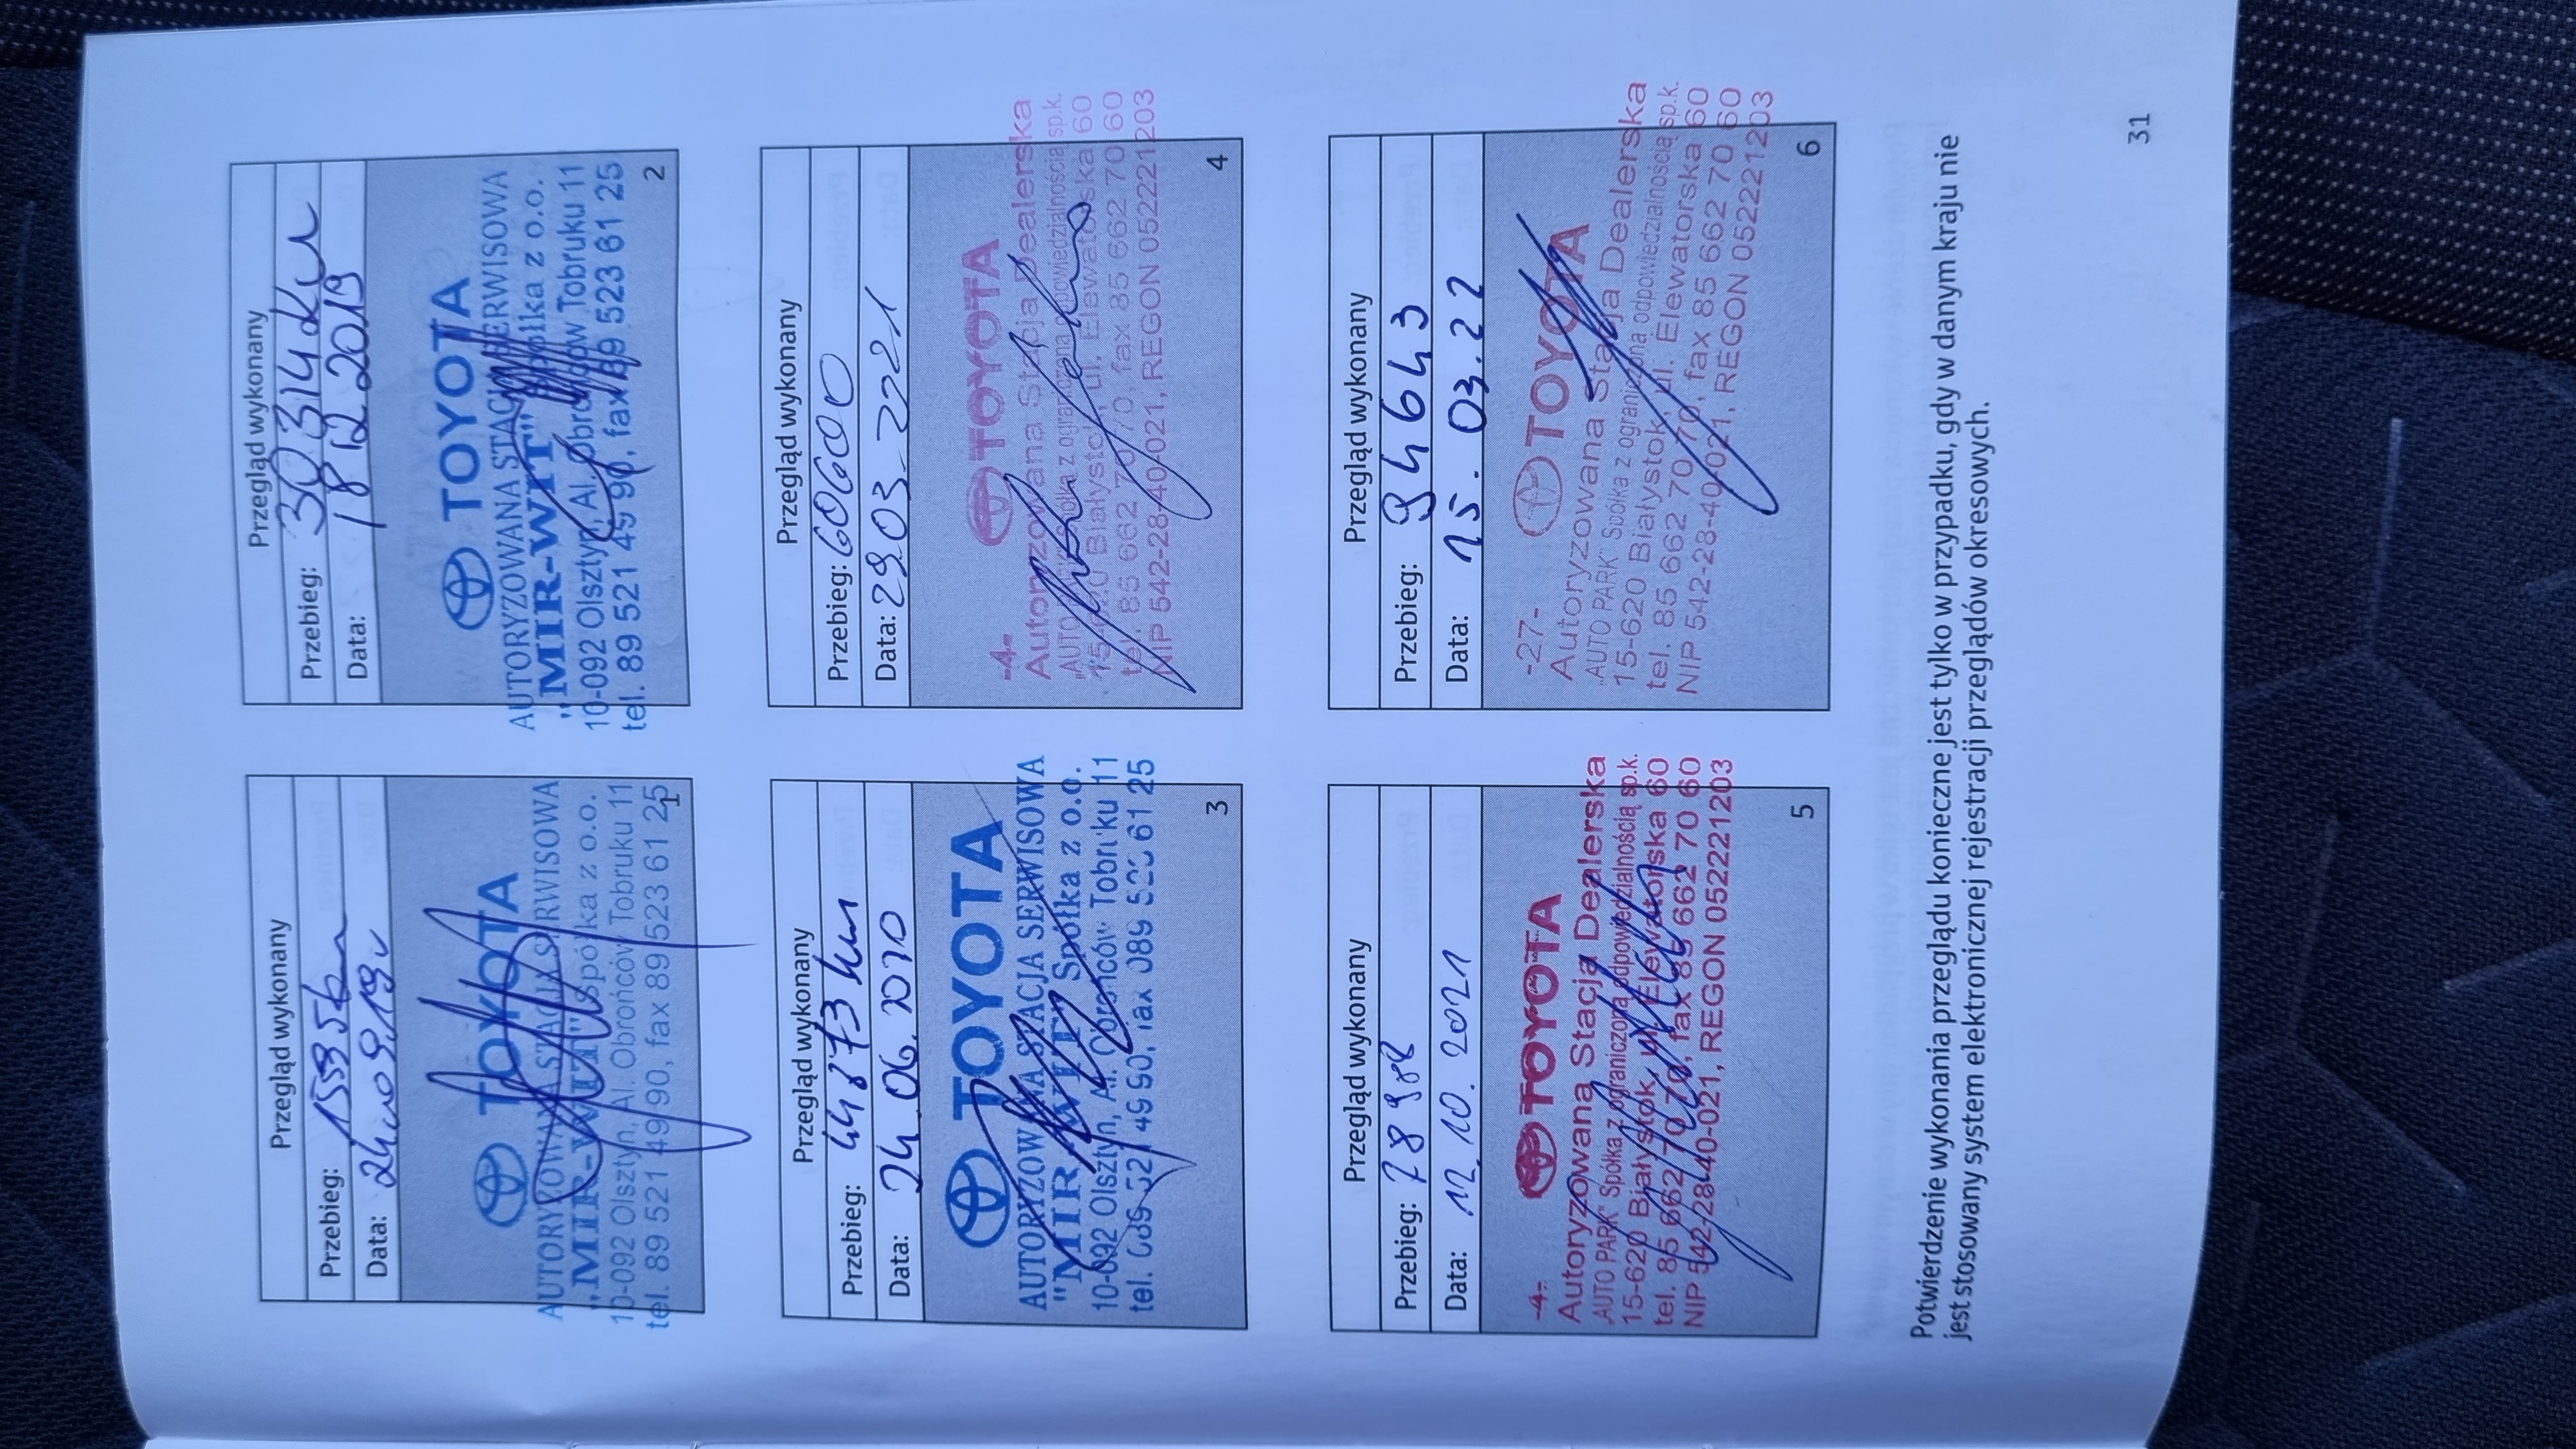 Przegląd wykonany
Przebieg: 15995km
Data: 24.09.19r
TOYOTA
AUTORYZOWANA STACJA SERWISOWA
"MIR-WIT" Spółka z o.o.
10-092 Olsztyn, Al. Obrońców Tobruku 11
tel. 89 521 49 90, fax 89 523 61 25
1
Przegląd wykonany
Przebieg: 30314km
Data: 18 12 2019
TOYOTA
AUTORYZOWANA STACJA SERWISOWA
"MIR-WIT" Spółka z o.o.
10-092 Olsztyn, Al. Obrońców Tobruku 11
tel. 89 521 49 90, fax 89 523 61 25
2
Przegląd wykonany
Przebieg: 44873 km
Data: 24.06.2020
TOYOTA
AUTORYZOWANA STACJA SERWISOWA
"MIR-WIT" Spółka z o.o.
10-092 Olsztyn, Al. Obrońców Tobruku 11
tel. 089 521 49 90, fax 089 523 61 25
3
Przegląd wykonany
Przebieg: 60600
Data: 29.03.2021
TOYOTA
-4-
Autoryzowana Stacja Dealerska
„AUTO PARK" Spółka z ograniczoną odpowiedzialnością sp.k.
15-620 Białystok, ul. Elewatorska 60
tel. 85 662 70 70, fax 85 662 70 60
NIP 542-28-40-021, REGON 052221203
4
Przegląd wykonany
Przebieg: 78988
Data: 12.10.2021
TOYOTA
-4-
Autoryzowana Stacja Dealerska
„AUTO PARK" Spółka z ograniczoną odpowiedzialnością sp.k.
15-620 Białystok, ul. Elewatorska 60
tel. 85 662 70 70, fax 85 662 70 60
NIP 542-28-40-021, REGON 052221203
5
Przegląd wykonany
Przebieg: 94643
Data: 15.03.22
TOYOTA
-27-
Autoryzowana Stacja Dealerska
„AUTO PARK" Spółka z ograniczoną odpowiedzialnością sp.k.
15-620 Białystok, ul. Elewatorska 60
tel. 85 662 70 70, fax 85 662 70 60
NIP 542-28-40-021, REGON 052221203
6
Potwierdzenie wykonania przeglądu konieczne jest tylko w przypadku, gdy w danym kraju nie
jest stosowany system elektronicznej rejestracji przeglądów okresowych.
31